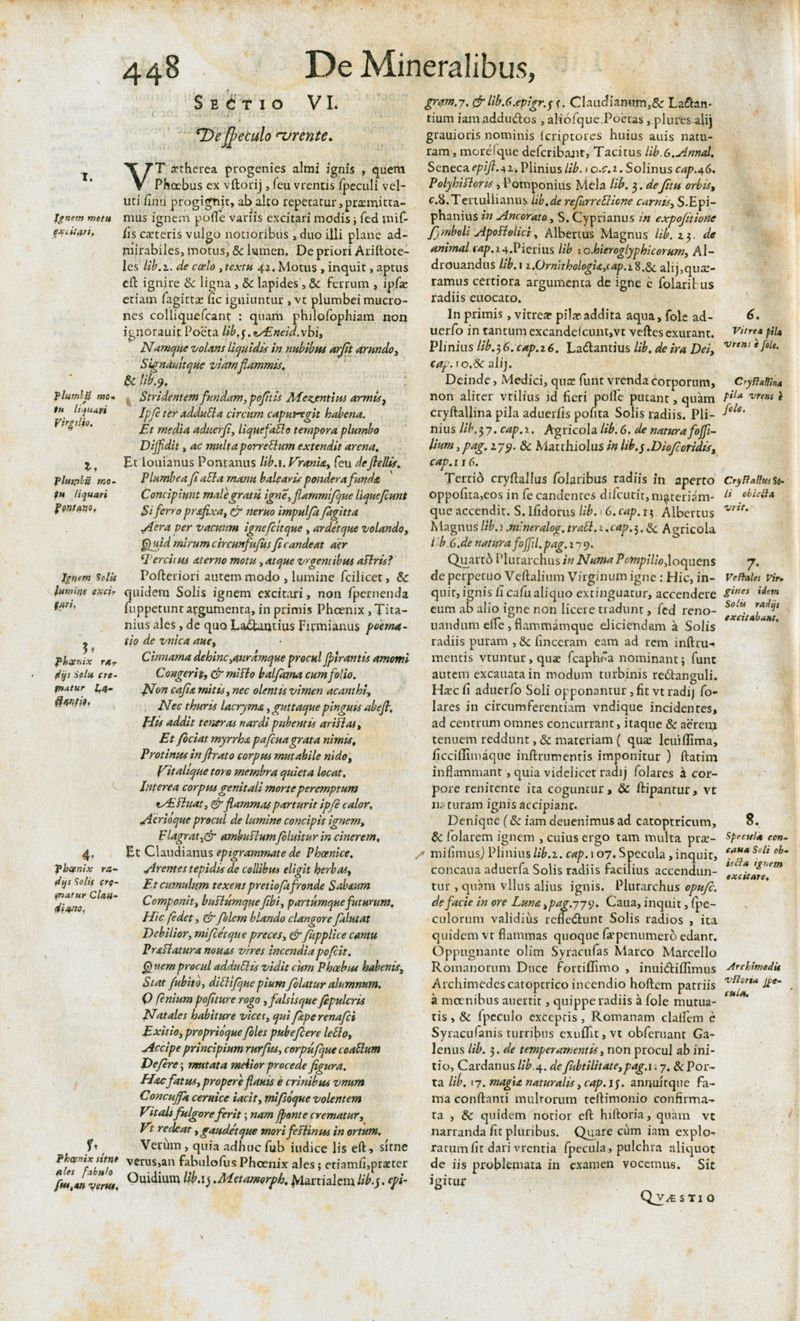 448 De Mineralibus,
SECTIO VI.
De ſpeculo vrente.
1.
VT ætherea progenies almi ignis , quem
Phœbus ex vſtorij , ſeu vrentis ſpeculi vel-
uti ſinu progignit, ab alto repetatur, præmitta-
Ignem motu
excitari,
mus ignem poſſe variis excitari modis ; ſed miſ-
ſis cæteris vulgo notioribus , duo illi planè ad-
mirabiles, motus, & lumen. De priori Ariſtote-
les lib.2. de cœlo , textu 42. Motus , inquit , aptus
eſt ignire & ligna , & lapides , & ferrum , ipſæ
etiam ſagittæ ſic igniuntur , vt plumbei mucro-
nes colliqueſcant : quam philoſophiam non
ignorauit Poëta lib.5. Æneid. vbi,
Namque volans liquidis in nubibus arſit arundo,
Signauitque viam flammis.
& lib.9.
Plumbū mo-
tu liquari
Virgilio.
Stridentem fundam, poſitis Mezentius armis,
Ipſe ter adducta circum caput egit habena.
Et media aduerſi, liquefacto tempora plumbo
Diffidit , ac multa porrectum extendit arena.
2,
Plumbū mo-
tu liquari
Pontano.
Et Iouianus Pontanus lib.1. Vrania, ſeu de ſtellis.
Plumbea ſi acta manu balearis pondera funda
Concipiunt malè gratū ignē, flammiſque liqueſcunt
Si ferro præfixa, & neruo impulſa ſagitta
Aera per vacuum igneſcitque , ardetque volando,
Quid mirum circunfuſus ſi candeat aër
Tercitus æterno motu , atque vrgentibus aſtris?
Ignem Solis
lumine exci-
tari,
Poſteriori autem modo , lumine ſcilicet , &
quidem Solis ignem excitari, non ſpernenda
ſuppetunt argumenta, in primis Phœnix , Tita-
nius ales , de quo Lactantius Firmianus poëma-
tio de vnica aue,
3,
Phœnix ra-
dijs Solis cre-
matur La-
ctantio.
Cinnama dehinc, aurámque procul ſpirantis amomi
Congerit, & miſto balſama cum folio.
Non caſiæ mitis, nec olentis vimen acanthi,
Nec thuris lacryma , guttaque pinguis abeſt,
His addit teneras nardi pubentis ariſtas,
Et ſociat myrrhæ paſcua grata nimis,
Protinus in ſtrato corpus mutabile nido,
Vitalique toro membra quieta locat.
Interea corpus genitali morte peremptum
Æſtuat, & flammas parturit ipſe calor,
Aërióque procul de lumine concipit ignem,
Flagrat, & ambuſtum ſoluitur in cinerem,
4,
Phœnix ra-
dijs Solis cre-
matur Clau-
diano,
Et Claudianus epigrammate de Phœnice.
Arentes tepidis de collibus eligit herbas,
Et cumulum texens pretioſa fronde Sabæum
Componit, buſtúmque ſibi, partúmque futurum.
Hic ſedet , & ſolem blando clangore ſalutat
Debilior, miſcétque preces, & ſupplice cantu
Præſtatura nouas vires incendia poſcit.
Quem procul adductis vidit cùm Phœbus habenis,
Stat ſubitò, dictiſque pium ſolatur alumnum.
O ſenium poſiture rogo , falsisque ſepulcris
Natales habiture vices, qui ſæpe renaſci
Exitio, proprióque ſoles pubeſcere leto,
Accipe principium rurſus, corpúſque coactum
Deſere ; mutata melior procede figura.
Hæc fatus, properè flauis è crinibus vnum
Concuſſa ceruice iacit, miſsóque volentem
Vitali fulgore ferit ; nam ſponte crematur,
Vt redeat , gaudétque mori feſtinus in ortum.
5,
Phœnix sítne
ales fabulo
ſus, an verus,
Verùm , quia adhuc ſub iudice lis eſt, sítne
verus, an fabuloſus Phœnix ales ; etiamſi, præter
Ouidium lib.15. Metamorph. Martialem lib.5. epi-
gram.7. & lib.6. epigr.55. Claudianum, & Lactan-
tium iam adductos , alióſque Poëtas , plures alij
grauioris nominis ſcriptores huius auis natu-
ram , moréſque deſcribant, Tacitus lib.6. Annal.
Seneca epiſt.42. Plinius lib.10.c.2. Solinus cap.46.
Polyhiſtoris , Pomponius Mela lib. 3. de ſitu orbis,
c.8. Tertullianus lib. de reſurrectione carnis, S. Epi-
phanius in Ancorato, S. Cyprianus in expoſitione
ſymboli Apoſtolici , Albertus Magnus lib. 23. de
animal. cap.24. Pierius lib 20. hieroglyphicorum, Al-
drouandus lib.12. Ornithologiæ, cap.28. & alij, quæ-
ramus certiora argumenta de igne è ſolaribus
radiis euocato.
6.
Vitrea pila
vrens è ſole.
In primis , vitreæ pilæ addita aqua, ſole ad-
uerſo in tantum excandeſcunt, vt veſtes exurant.
Plinius lib.36. cap.26. Lactantius lib. de ira Dei,
cap.10. & alij.
Cryſtallina
pila vrens è
ſole.
Deinde, Medici, quæ ſunt vrenda corporum,
non aliter vtilius id fieri poſſe putant , quàm
cryſtallina pila aduerſis poſita Solis radiis. Pli-
nius lib.37. cap.2. Agricola lib. 6. de natura foſſi-
lium , pag. 279. & Matthiolus in lib.5. Dioſcoridis,
cap.116.
Cryſtallus So-
li obiecta
vrit.
Tertiò cryſtallus ſolaribus radiis in aperto
oppoſita, eos in ſe candentes diſcutit, materiám-
que accendit. S. Iſidorus lib. 16. cap.13 Albertus
Magnus lib.2. mineralog. tract.2. cap.3. & Agricola
lib 6. de natura foſſil. pag.279.
7.
Veſtales Vir-
gines idem
Solis radijs
excitabant.
Quartò Plutarchus in Numa Pompilio, loquens
de perpetuo Veſtalium Virginum igne : Hic, in-
quit, ignis ſi caſu aliquo extinguatur, accendere
eum ab alio igne non licere tradunt , ſed reno-
uandum eſſe , flammámque eliciendam à Solis
radiis puram , & ſinceram eam ad rem inſtru-
mentis vtuntur, quæ ſcaphia nominant ; ſunt
autem excauata in modum turbinis rectanguli.
Hæc ſi aduerſo Soli opponantur , fit vt radij ſo-
lares in circumferentiam vndique incidentes,
ad centrum omnes concurrant, itaque & aërem
tenuem reddunt , & materiam ( quæ leuiſſima,
ſicciſſimáque inſtrumentis imponitur ) ſtatim
inflammant , quia videlicet radij ſolares à cor-
pore renitente ita coguntur , & ſtipantur, vt
naturam ignis accipiant.
8.
Specula con-
caua Soli ob-
iecta ignem
excitare.
Denique ( & iam deuenimus ad catoptricum,
& ſolarem ignem , cuius ergo tam multa præ-
miſimus) Plinius lib.2. cap.107. Specula , inquit,
concaua aduerſa Solis radiis facilius accendun-
tur , quàm vllus alius ignis. Plutarchus opuſc.
de facie in orbe Lunæ, pag.779. Caua, inquit , ſpe-
culorum validiùs reflectunt Solis radios , ita
quidem vt flammas quoque ſæpenumerò edant.
Oppugnante olim Syracuſas Marco Marcello
Archimedis
vſtoria ſpe-
cula.
Romanorum Duce fortiſſimo , inuictiſſimus
Archimedes catoptrico incendio hoſtem patriis
à mœnibus auertit , quippe radiis à ſole mutua-
tis , & ſpeculo exceptis , Romanam claſſem è
Syracuſanis turribus exuſſit, vt obſeruant Ga-
lenus lib. 3. de temperamentis, non procul ab ini-
tio, Cardanus lib.4. de ſubtilitate, pag.117. & Por-
ta lib. 17. magiæ naturalis , cap.15. annuítque fa-
ma conſtanti multorum teſtimonio confirma-
ta , & quidem notior eſt hiſtoria, quàm vt
narranda ſit pluribus. Quare cùm iam explo-
ratum ſit dari vrentia ſpecula, pulchra aliquot
de iis problemata in examen vocemus. Sit
igitur
QVÆSTIO